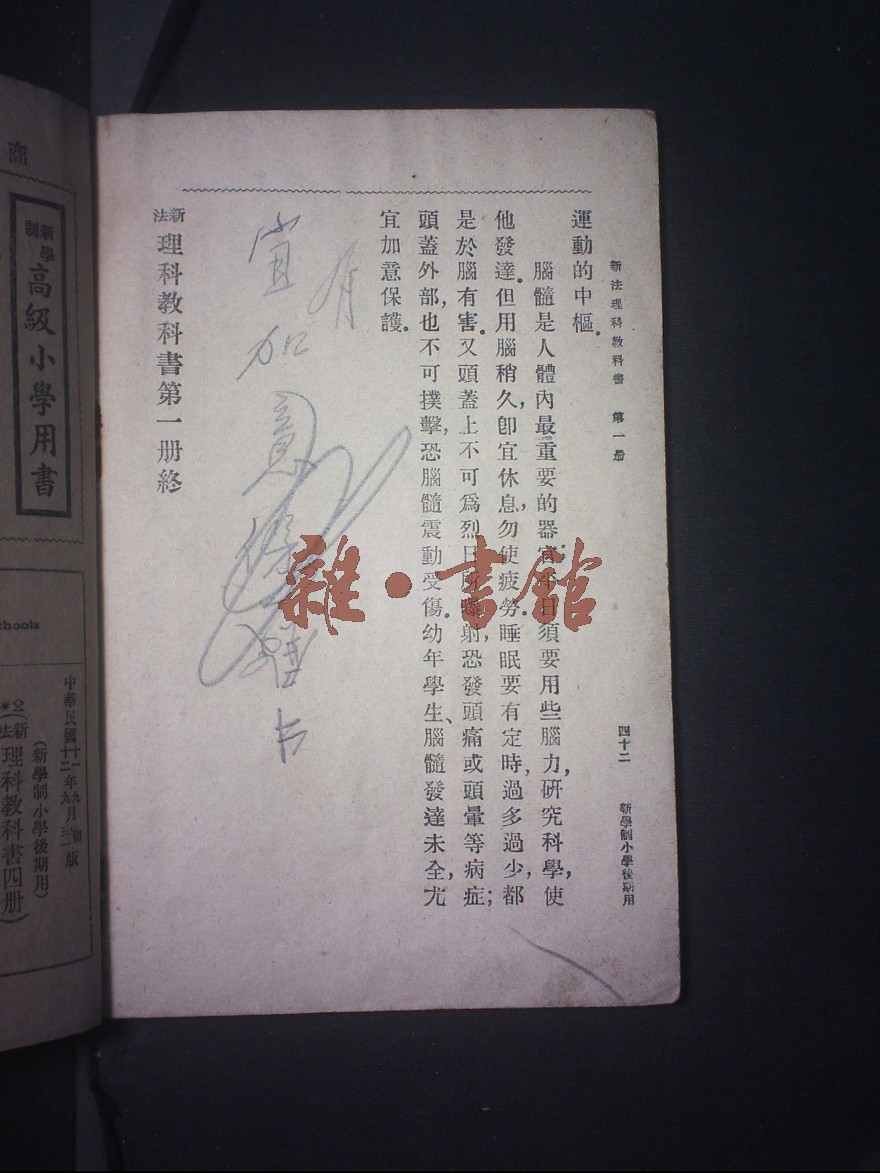 新法理科教科書 第一册 四十二 新學制小學後期用
運動的中樞。
腦髓是人體內最重要的器官、平日須要用些腦力，研究科學，使
他發達。但用腦稍久，卽宜休息，勿使疲勞。睡眠要有定時，過多過少，都
是於腦有害。又頭蓋上不可爲烈日所 射，恐發頭痛或頭暈等病症；
頭蓋外部，也不可撲擊，恐腦髓震動受傷。幼年學生、腦髓發達未全，尤
宜加意保護。
宜加意
新法理科教科書第一册終
商
新學制高級小學用書
chools
中華民國十一年九月初版
十二年九月三一版
（新學制小學後期用）
新法理科教科書四册）
雜·書館